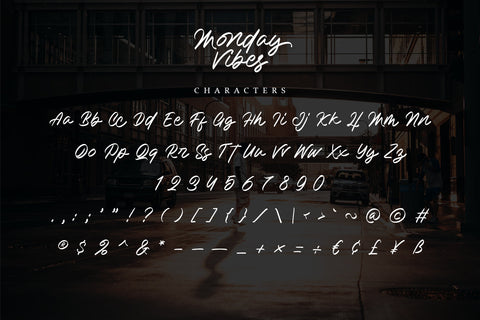 Monday
Vibes
CHARACTERS
Aa Bb Cc Dd Ee Ff Gg Hh Ii Jj Kk Ll Mm Nn
Oo Pp Qq Rr Ss Tt Uu Vv Ww Xx Yy Zz
1 2 3 4 5 6 7 8 9 0
. , : ; ' " ! ? ( ) [ ] { } / \ | ‹ › ` ~ @ © #
® $ % ^ & * - – — _ + × = ÷ € ¢ £ ¥ ß